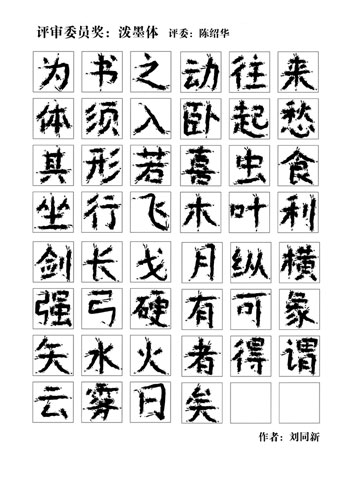 评审委员奖：泼墨体 评委：陈绍华
为书之动往来
体须入卧起愁
其形若喜虫食
坐行飞木叶利
剑长戈月纵横
强弓硬有可象
矢水火者得谓
云雾日矣
作者：刘同新